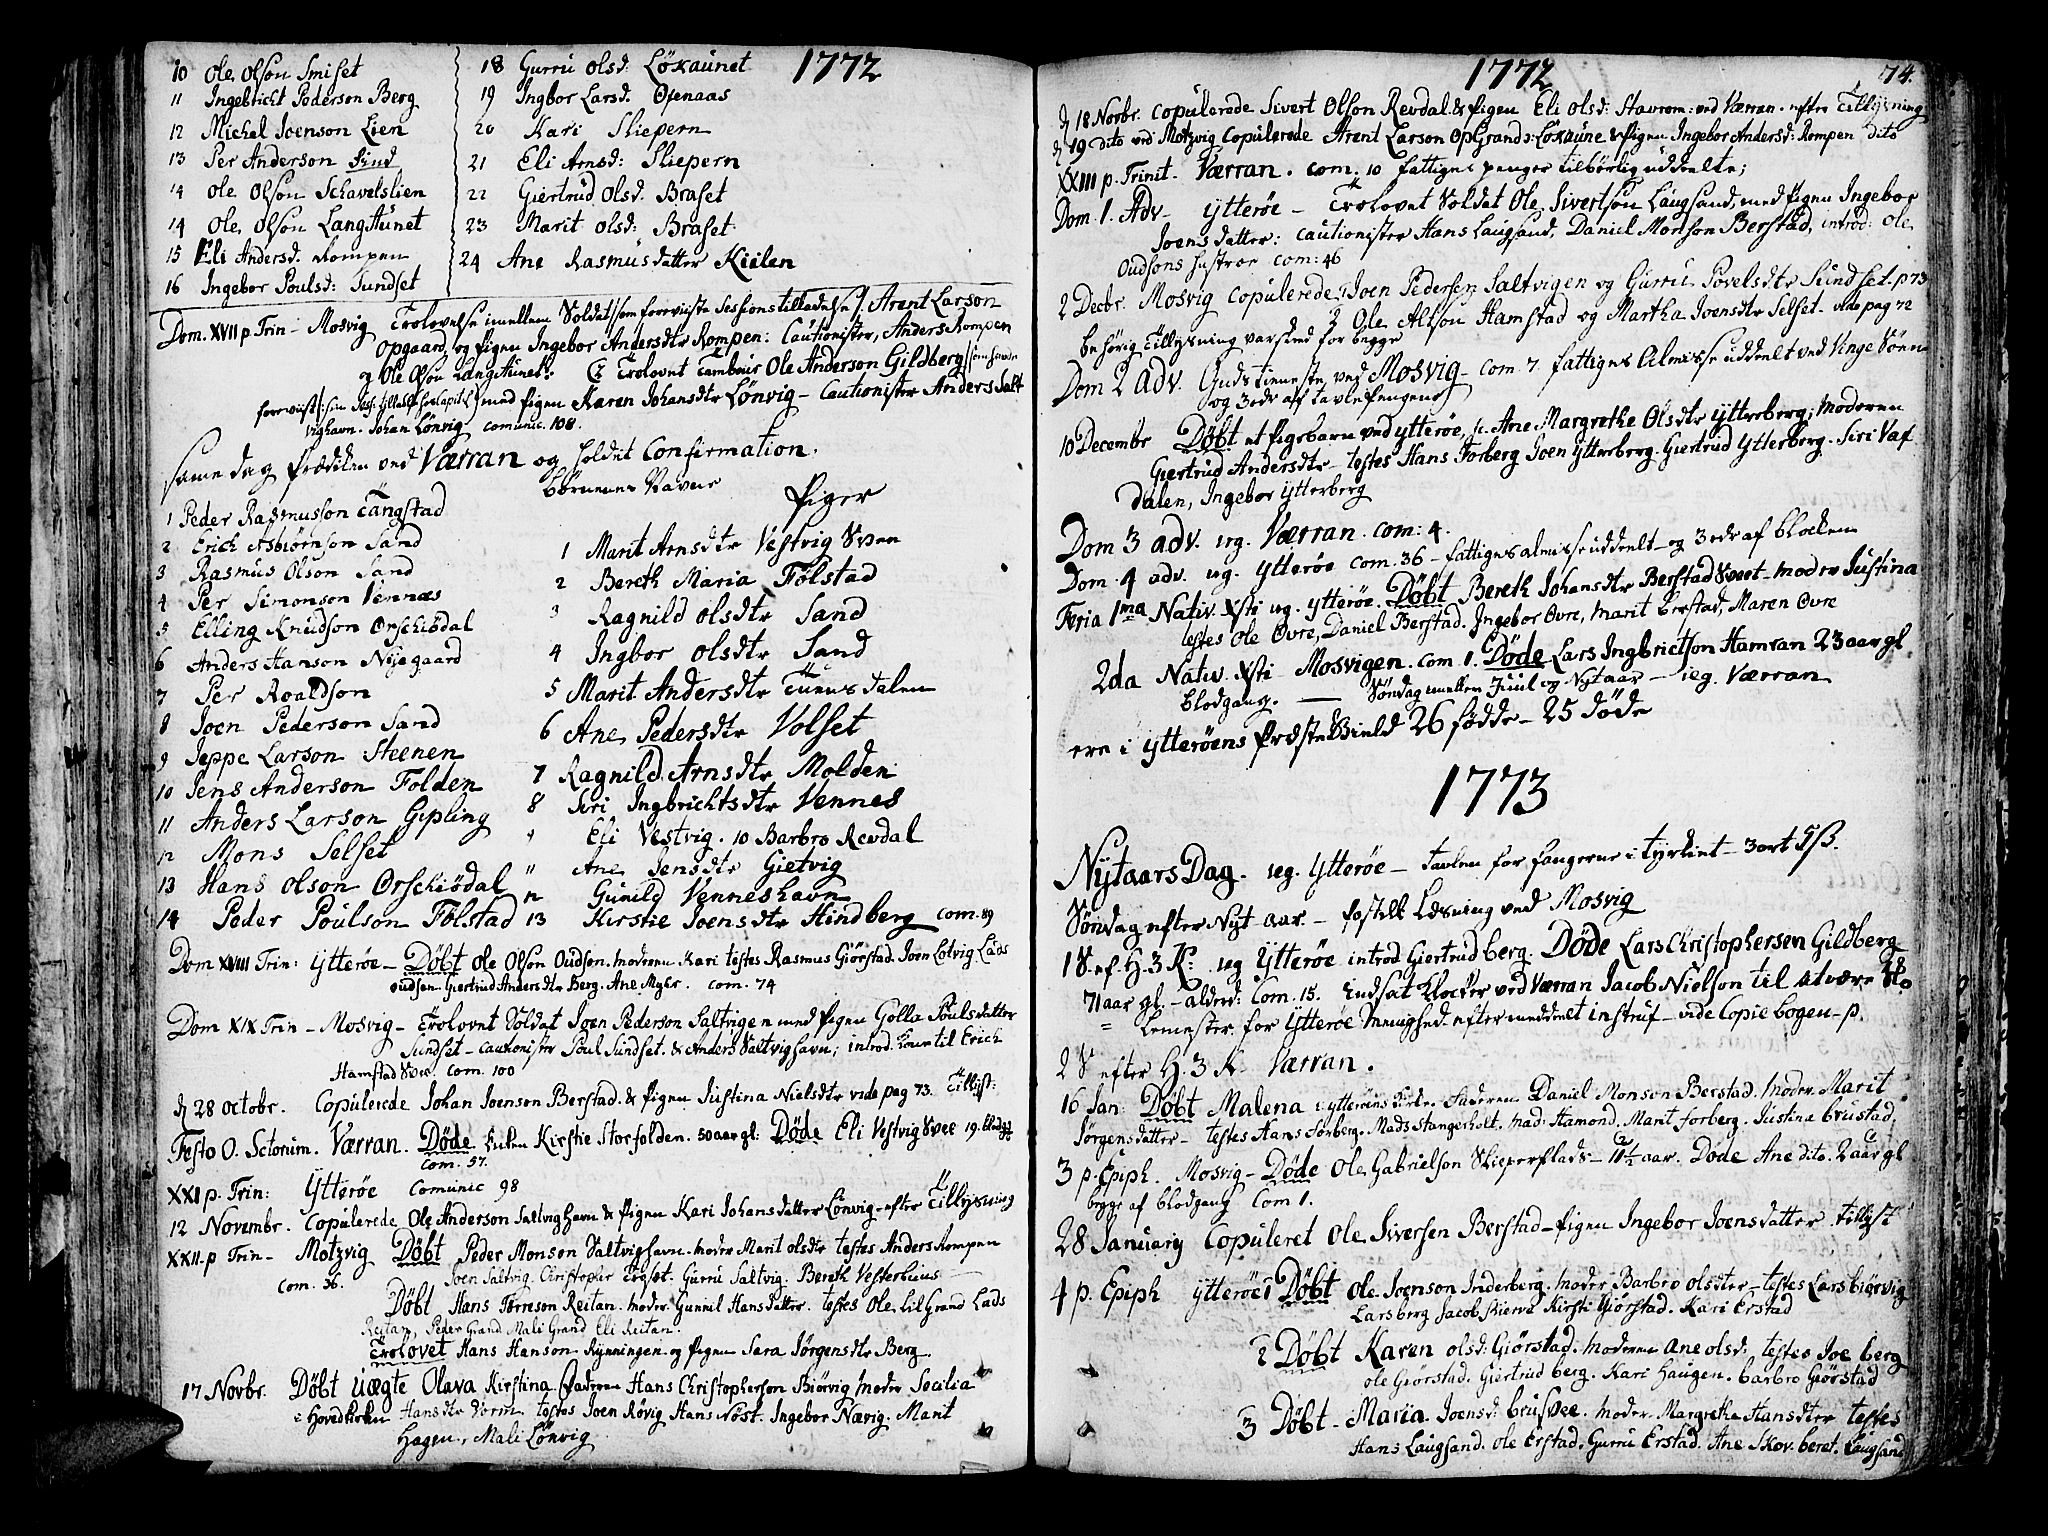 1772
10 Ole Olson Smiset
11 Ingebricht Pederson Berg
12 Michel Joenson Lien
13 Per Anderson Sund
14 Ole Olson Schavelslien
14 Ole Olson LangAunet
15 Eli Andersd. Rompen
16 Ingebor Poulsd: Sundset
18 Gurru Olsd: Löxaunet
19 Ingbor Larsd. Opnaas
20 Kari Sliepern
21 Eli Arnsd: Sliepern
22 Giertrud Olsd: Braset
23 Marit Olsd: Braset
24 Ane Rasmusdatter Kiilen
Dom. XVII p Trin - Mosvig Trolovelse imellem Soldat /: som foreviiste Sessions tilladelse :/ Arent Larson
Opgaard og Pigen Ingebor Andersdtr Rompen: Cautionister, Anders Rompen
og Ole Olson LangAunet. 2 Trolovet Tambour Ole Anderson Gildberg
foreviist med Pigen Karen Johansdtr Lönvig - Cautionister Anders Salt
vighavn. Johan Lönvig comunic. 108.
samme dag Prædiken ved Værran og holdet Confirmation.
Börnenes Navne
Piger
1 Peder Rasmusson Tangstad
2 Erich Asbiörnson Sand
3 Rasmus Olson Sand
4 Per Simonson Vennæs
5 Elling Knudson Orschiödal
6 Anders Hanson Nijegaard
7 Per Roaldson
8 Joen Pederson Sand
9 Jeppe Larson Steenen
10 Jens Anderson Folden
11 Anders Larson Gipling
12 Mons Selset
13 Hans Olson Orschiödal
14 Peder Poulson Fölstad
1 Marit Arnsdtr Vestvig Svee
2 Bereth Maria Fölstad
3 Ragnild Olsdtr Sand
4 Ingbor Olsdtr Sand
5 Marit Andersdtr Tuensdalen
6 Ane Pedersdtr Volset
7 Ragnild Arnsdtr Molden
8 Siri Ingbrichtsdtr Vennes
" Eli Vestvig. 10 Barbro Revdal
" Ane Jensdtr Gietvig
12 Gunild Venneshavn
13 Kirstie Joensdtr Hindberg com. 89
Dom XVIII Trin: Ytteröe - Döbt Ole Olson Oudson. moderen Kari testes Rasmus Giörstad. Joen Lotvig Lads
oudsen Giertrud Andersdtr Berg. Ane Myhr. com. 74
Dom XIX Trin - Mosvig - Trolovet Soldat Joen Pederson Saltvigen med Pigen Golla Poulsdatter
Sundset - cautionistr Poul Sundset. & Anders Saltvighavn; introd. Kone til Erich
Hamstad Svee. Com. 100
d 28 Octobr. Copulerede Johan Joenson Berstad. & Pigen Justina Nielsdtr vide pag 73. Tillyst:
Festo O. Sctorum. Værran. Döde Enken Kirstie Storfolden. 50 aar gl: Döde Eli Vestvig Svee 19.
Com. 57.
XXI p. Trin: Ytteröe Comunic 98
12 Novembr. Copulerede Ole Anderson Saltvighavn & Pigen Kari Johansdatter Lönvig - efter Tillysning
XXII. p Trin - Motzvig Döbt Peder Monson Saltvighavn. moder Marit olsdtr testes Anders Rompen
com. 36. Joen Saltvig. Christopher Trgset. Gurru Saltvig. Bereth Vesterhuus
Döbt Hans Torreson Reitan. moder Gunnil Hansdatter. testes Ole LilGrand Lads
Reitan, Peder Grand Mali Grand Eli Reitan.
Trolovet Hans Hanson Rynningen og Pigen Sara Jörgensdtr Berg.
17 Novbr. Döbt Uægte Olava Kirstina. Faderen Hans Christopherson Biörvig Moder Secilia
i Hovedkirken Hansdtr Vorin. testes Joen Rövig Hans Nöst. Ingebor Nævig. Marit
Hagen, Mali Lönvig.
1772
74.
d 18 Novbr. Copulerede Sivert Olson Revdal. & Pigen Eli Olsd: Stavrem: ved Værran. efter Tillysning
d 19 dito ved Motzvig Copulerede Arent Larson OpGrand: Löxaune & Pigen Ingebor Andersd: Rompen dito
XXIII p. Trinit. Værran. com. 10 fattiges penger tilbörlig uddeelte;
Dom. 1. Adv - Ytteröe - Trolovet Soldat Ole Sivertson Laugsand, med Pigen Ingebor
Joensdatter: cautionister Hans Laugsand, Daniel Monson Berstad, introd: Ole
Oudsons hustroe com: 46
2 Decbr. Mosvig Copulerede, Joen Pedersen Saltvigen og Gurru Povelsdtr Sundset. p 73
2 Ole Alson Hamstad og Martha Joensdtr Selset - vide pag 72
behörig Tillysning var skeed for begge
Dom 2 Adv. Gudstieneste ved Mosvig - com 7. fattiges Almisse uddeelt ved Vinge Söen
og 3 ort af tavlePengene
10 Decembr Döbt et Pigebarn ved Ytteröe, n. Ane Margrethe Olsdtr Ytterberg; moderen
Giertrud Andersdtr - testes Hans Forberg Joen Ytterberg. Giertrud Ytterberg. Siri Vaf
dalen, Ingebor Ytterberg
Dom 3 adv. ieg. Værran. com: 4.
Dom. 4 adv. ieg. Ytteröe com. 36 - fattiges almisse uddeelt - og 3 ort af blocken
Feria 1ma Nativ. Xsti ieg. Ytteröe. Döbt Bereth Johansdtr Berstad Sveet - moder Justina
testes Ole Övre, Daniel Berstad. Ingebor Övre, Marit Berstad, Maren Övre
2da Nativ. Xsti Mosvigen. com 1. Döde Lars Ingbrictson Hamran 23 aar gl
blodgang. - Söndag mellem Juul og Nytaar - ieg. Værran
ere i Ytteröens PræsteGield 26 födde - 25 döde
1773
NytaarsDag. ieg. Ytteröe - tavlen for fangerne i Tyrkiet - 3 ort 5 ß.
Söndag efter Nyt aar. - Postill Læsning ved Mosvig
1 S. ef. H. 3 K: ieg Ytteröe introd Giertrud berg. Döde Lars Christophersen Gildberg
71 aar gl. - alderd: Com. 15. Indsat Klocker ved Værran Jacob Nielson til at være Sko
lemester for Ytteröe Menighed efter meddeelt instrux - vide Copie bogen - p.
2 S efter H. 3 K. Værran.
16 Jan: Döbt Malena i ytteröens kirke. Faderen Daniel Monsen Berstad. Moder Marit
Jörgensdatter - testes Hans Forberg. Mads Stangerholt. Mad: Hamond. Marit Forberg. Justina brustad.
3 p. Epiph. Mosvig - Döde Ole Gabrielson Slieperflads - 10½ aar. Döde Ane dito. 2 aar gl
begge af blodgang Com 1.
28 January Copuleret Ole Siversen Berstad - Pigen Ingebor Joensdatter tillyst
4 p. Epiph Ytteröe 1 Döbt Ole Joenson Inderberg. Moder Barbro olsdter - testes Lars biörvig
Lars berg Jacob Kierve Kirsti Giörstad. Kari Erstad
2 Döbt Karen olsd: Giörstad. Moderen Ane olsd: testes Joe berg
Ole Giörstad. Giertrud berg. Kari Haugen. barbro Giörstad
3 Döbt - Maria Joensd: bruSvee. Moder Margrethe Hansdter testes
Hans Laugsand. Ole Erstad. Gurru Erstad. Ane Skov. beret Laugsand